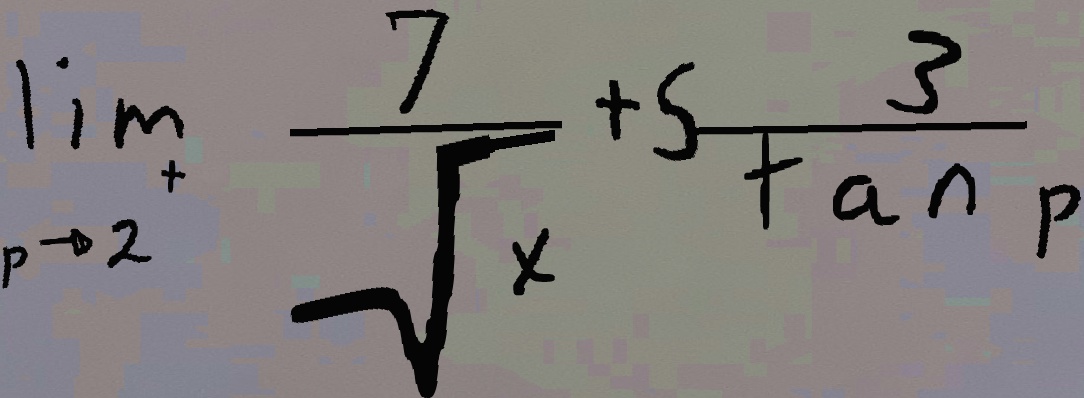 \lim_{p \to 2^+} \frac{7}{\sqrt{x}} + 5 \frac{3}{\tan p}